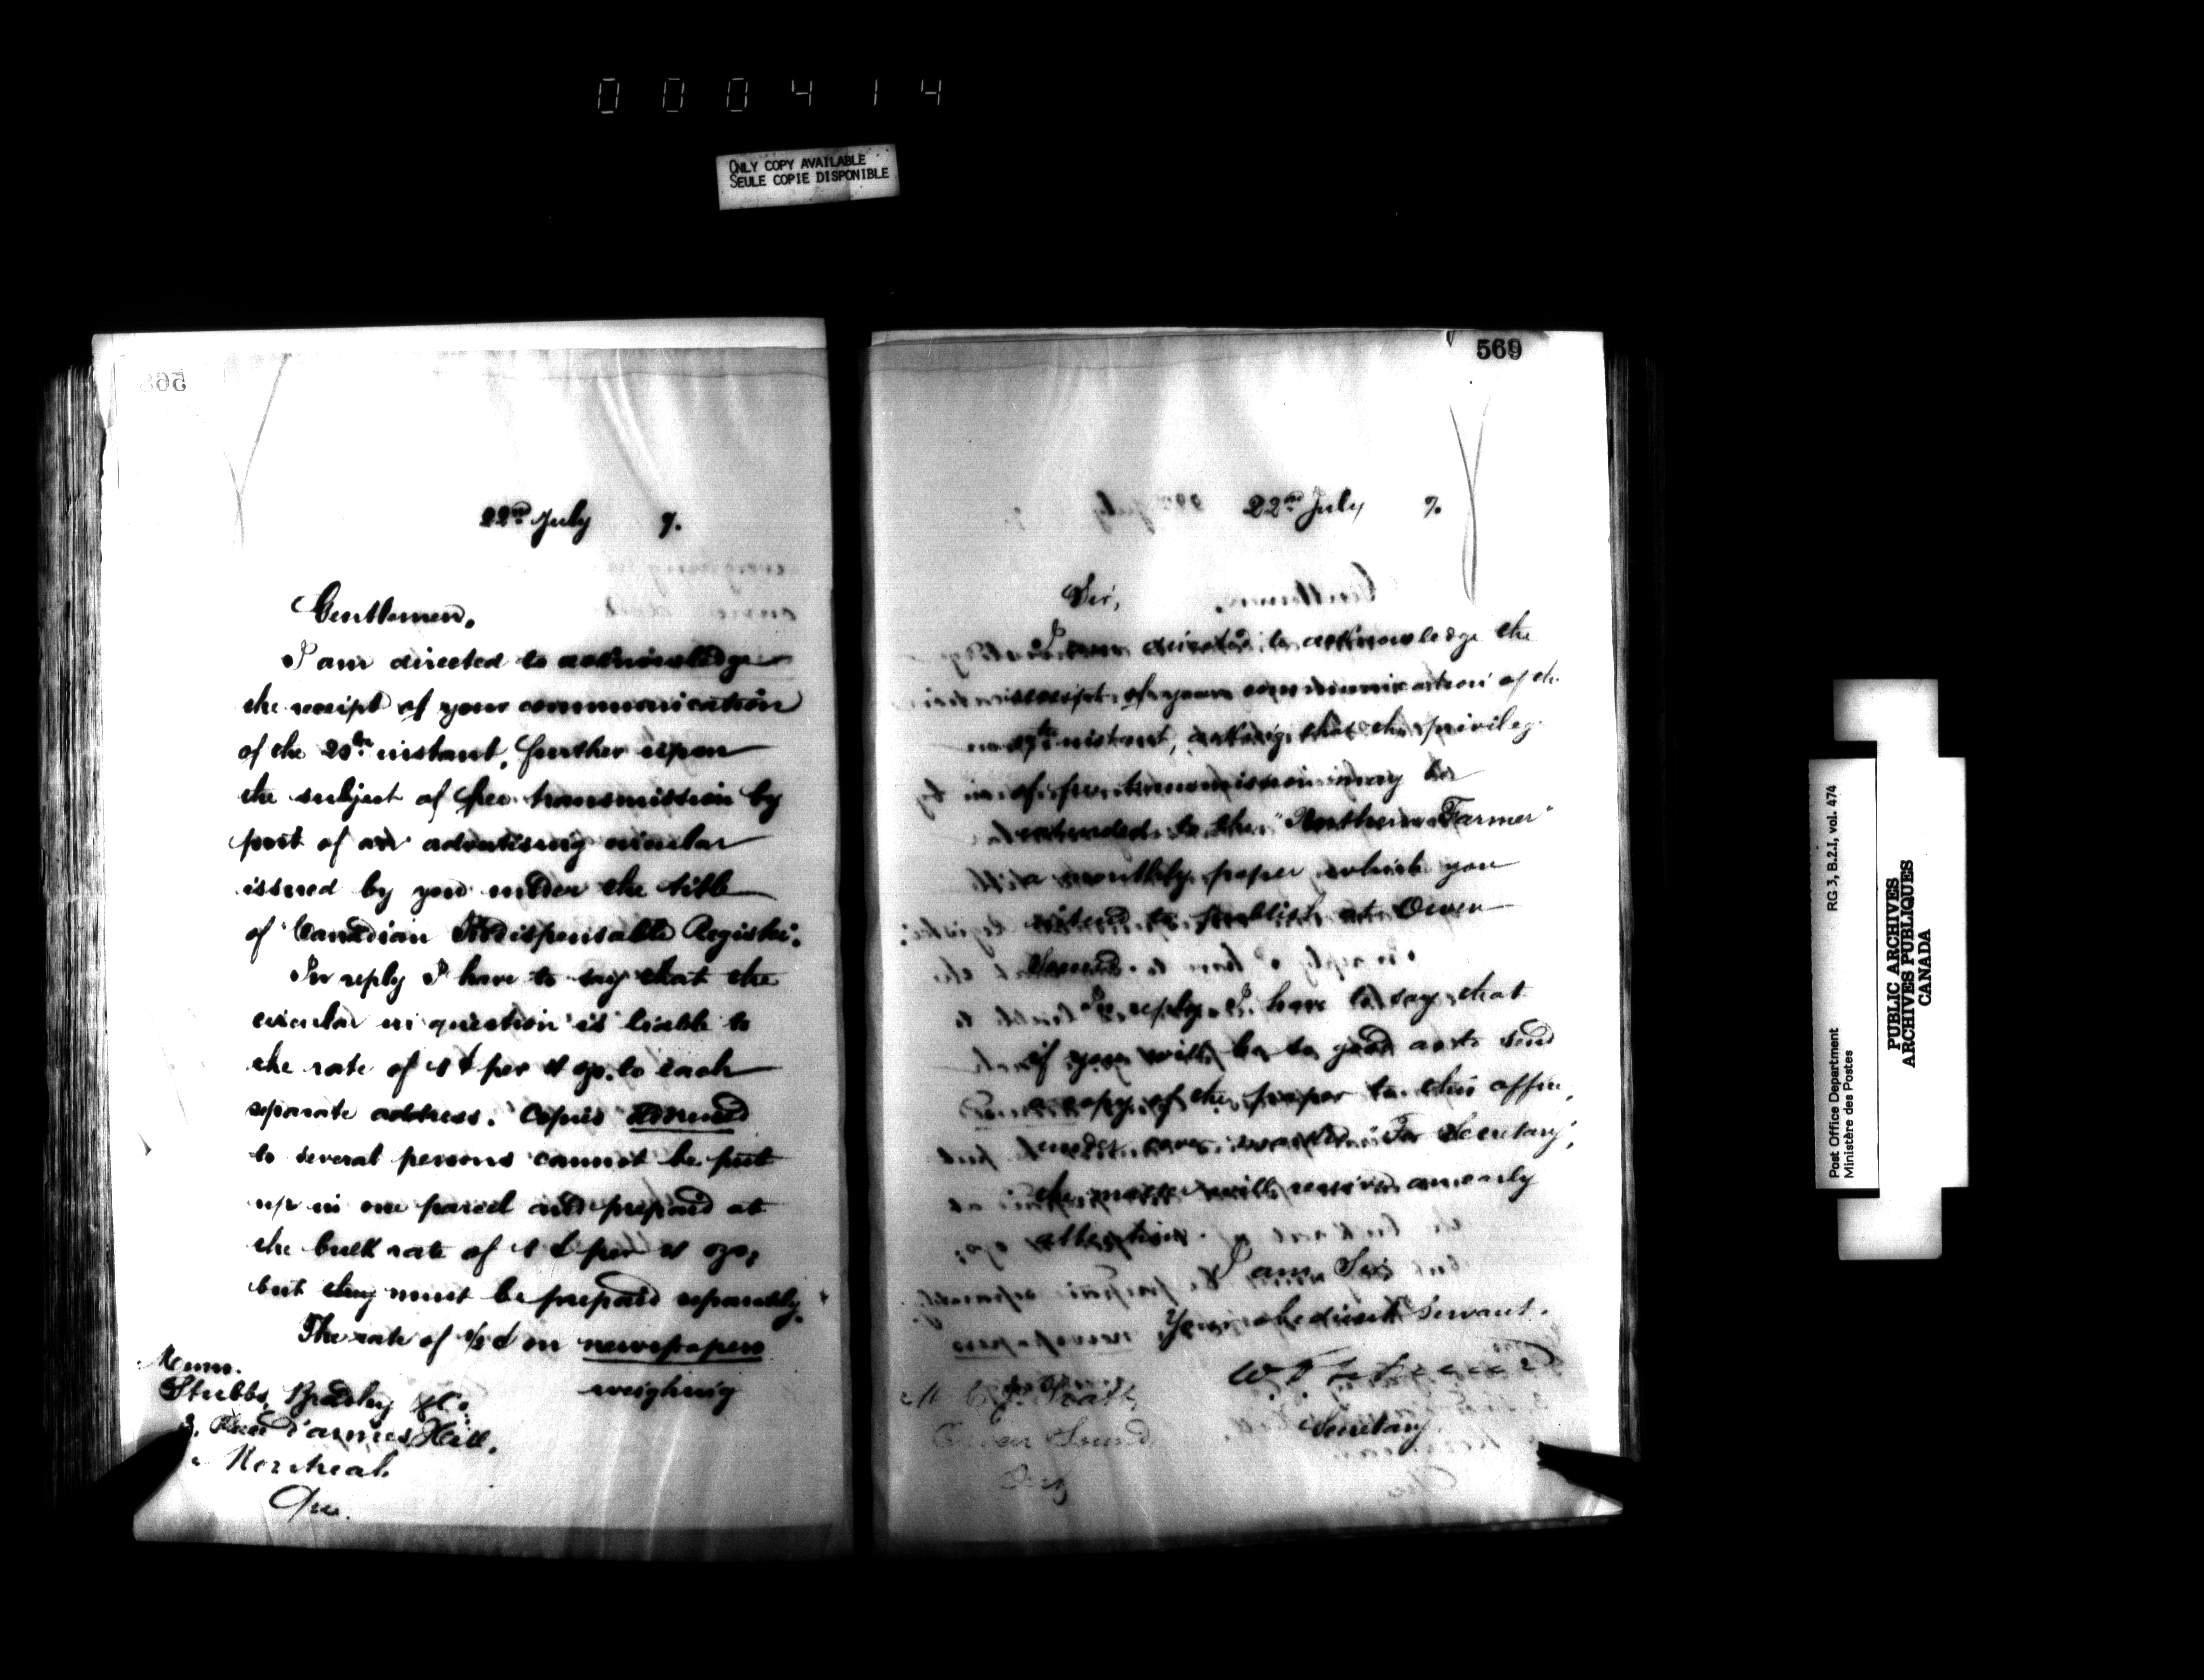 000414
ONLY COPY AVAILABLE
SEULE COPIE DISPONIBLE
568
22nd July 7.
Gentlemen,
I am directed to acknowledge
the receipt of your communication
of the 20th instant, further upon
the subject of free transmission by
post of an advertising circular
issued by you under the title
of "Canadian Indispensable Register.
In reply I have to say that the
circular in question is liable to
the rate of 1 ¢ per 4 ozs. to each
separate address. Copies addressed
to several persons cannot be put
up in one parcel and prepaid at
the bulk rate of 1 ¢ per 4 ozs,
but they must be prepaid separately.
The rate of 1/2 ¢ on newspapers
weighing
Messrs.
Stubbs, Bradley & Co.
3, Place d'armes Hill,
Montreal.
Que.
569
22nd July 7.
Sir,
I am directed to acknowledge the
receipt of your communication of the
instant, asking that the privilege
of free transmission may be
extended to the "Northern Farmer"
a monthly paper which you
intend to publish at Owen
Sound.
In reply I have to say that
if you will be so good as to send
a copy of the paper to this office,
under cover marked "For Secretary",
the matter will receive an early
attention.
I am, Sir,
Your obedient Servant.
Secretary
Owen Sound
Ont
Post Office Department
Ministère des Postes
RG 3, B.2.I, vol. 474
PUBLIC ARCHIVES
ARCHIVES PUBLIQUES
CANADA